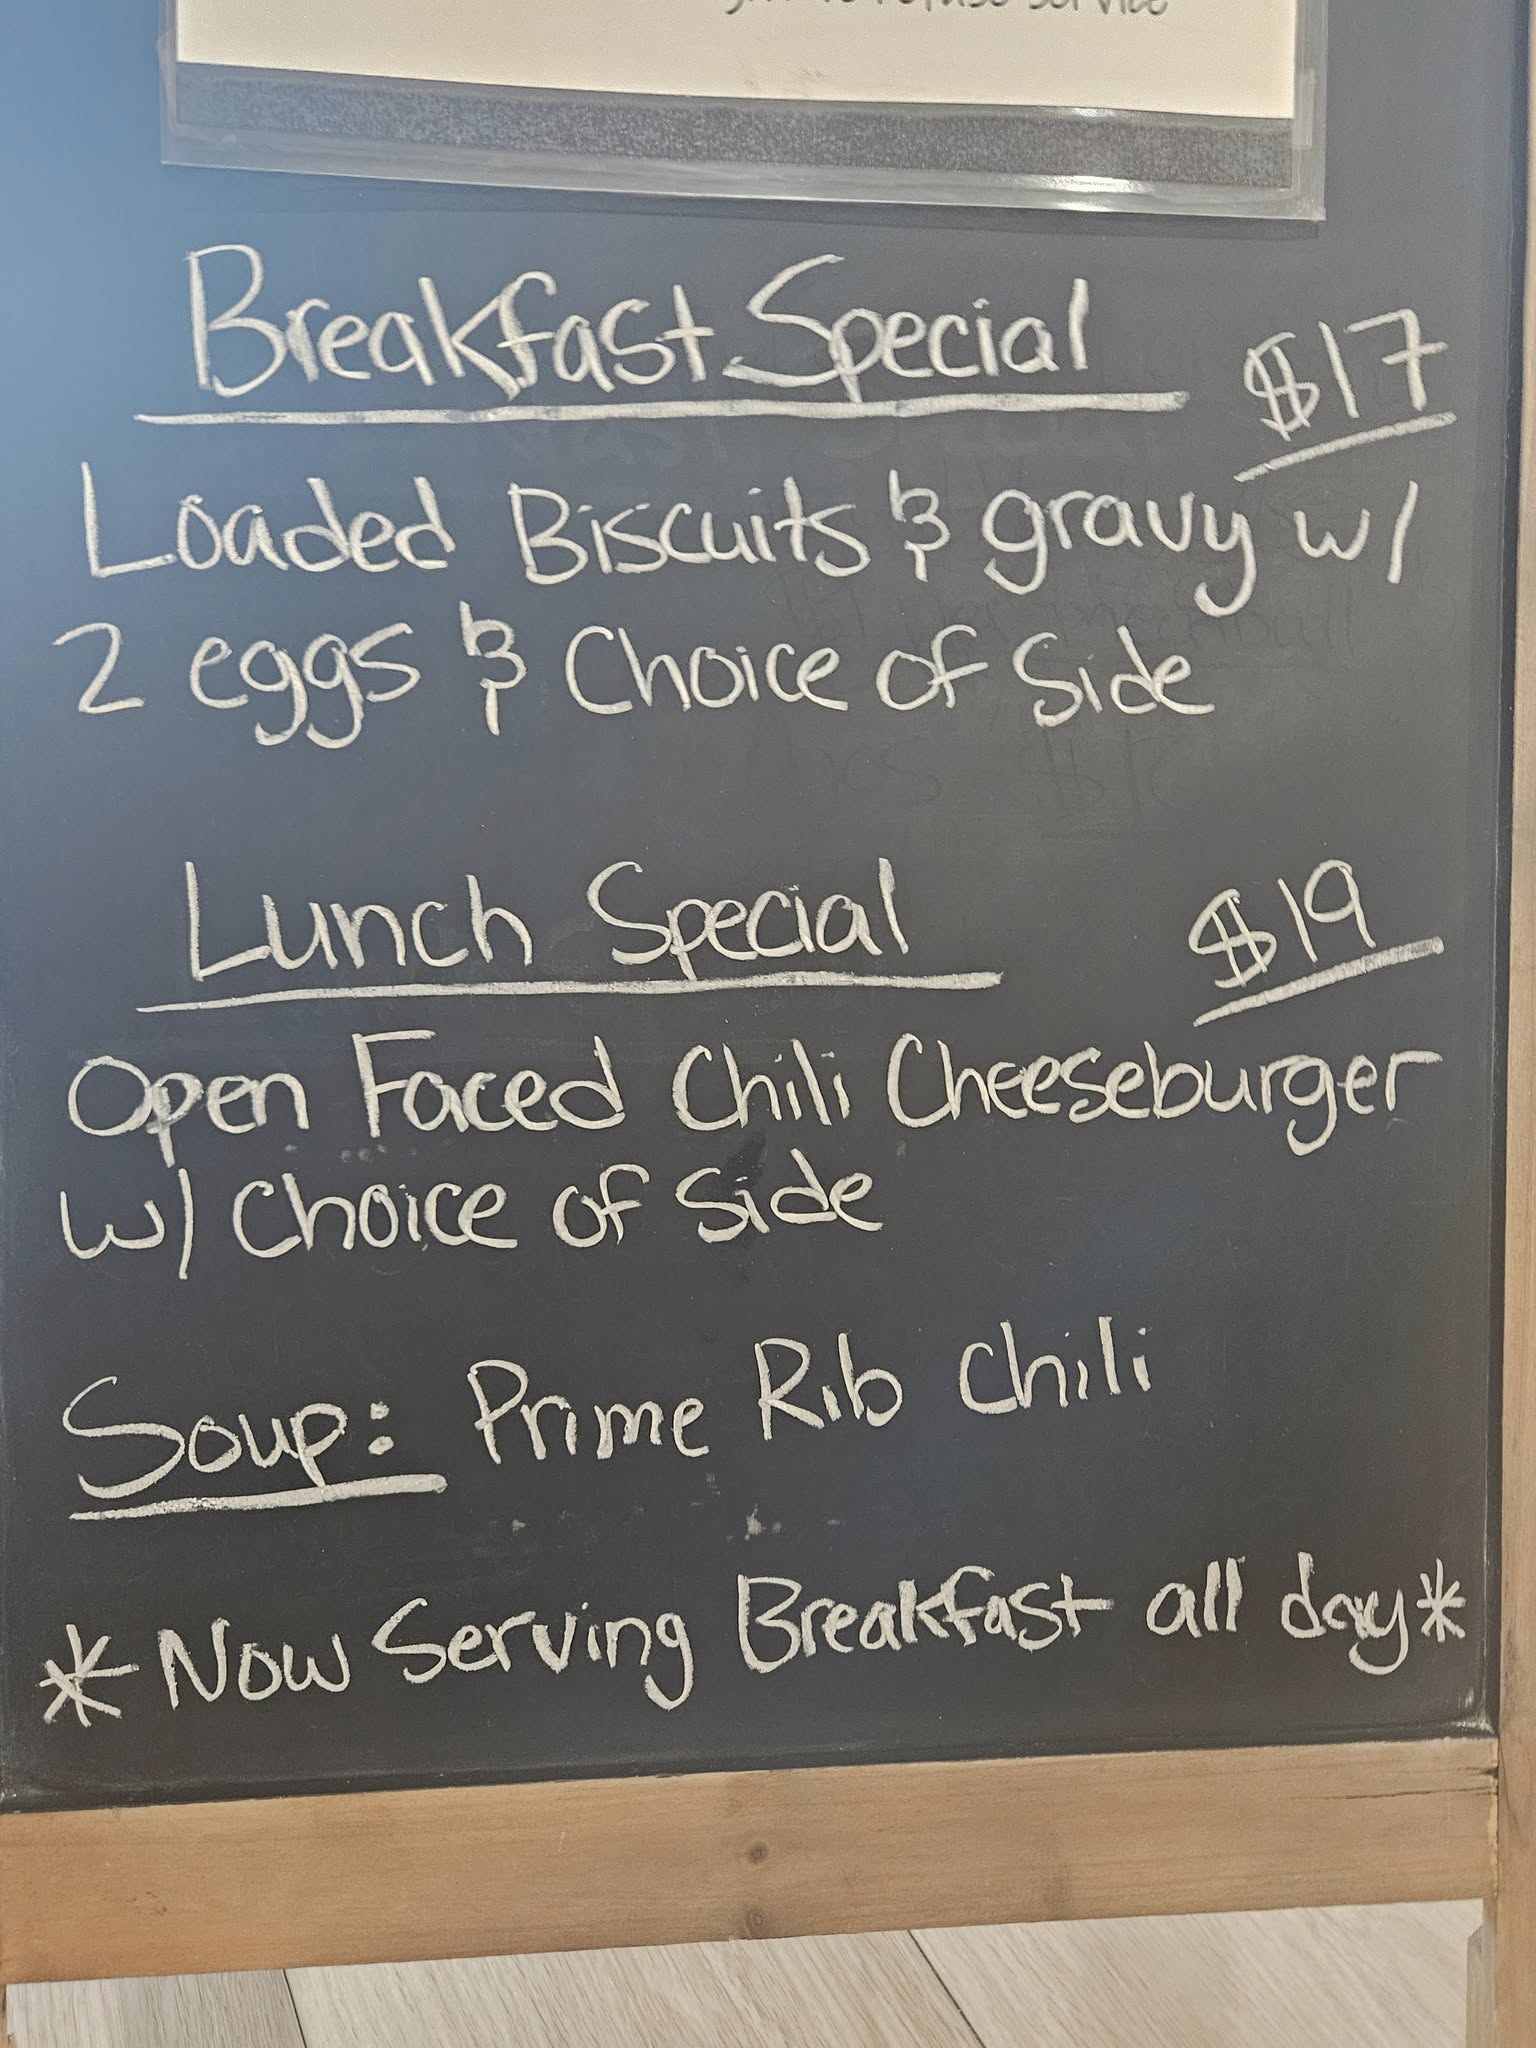 refuse service
Breakfast Special $17
Loaded Biscuits & gravy w/
2 eggs & Choice of Side
Lunch Special $19
Open Faced Chili Cheeseburger
w/ Choice of Side
Soup: Prime Rib Chili
*Now Serving Breakfast all day*